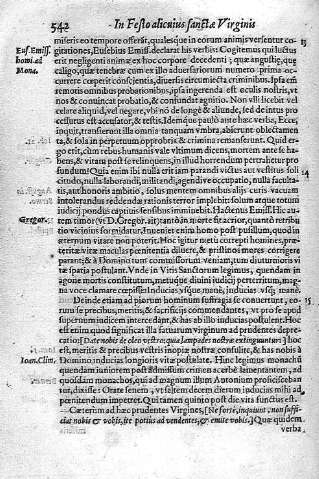 542 In Festo alicuius sanctæ Virginis
miseris eo tempore offerat, qualesque in eorum animis versentur co-
Eus. Emiss. gitationes, Eusebius Emiss. declarat his verbis: Cogitemus qui luctus
homi. ad erit negligenti animæ ex hoc corpore decedenti; quæ angustię, quæ
Mona. caligo, quæ tenebræ cum ex illo aduersariorum numero prima oc-
currere cœperit conscientia, diuersis circumdata criminibus. Ipsa
remotis omnibus probationibus, ipsa ingerenda est oculis nostris, vt
nos & conuincat probatio, & confundat agnitio. Non vlli licebit vel
celare aliquid, vel negare, vbi no de longè & aliunde, sed de intus pro
cessurus est accusator, & testis. Idem
inquit, transferunt illa omnia tanquam vmbra, abierunt oblectamen
ta, & sola in perpetuum opprobria & crimina remanserunt. Quid er-
go erit, cùm rebus humanis vale vltimum dicens, mortem ante se ha-
bens, & vitam post te relinquens, in illud horrendum pertrahetur pro
fundum? Quia enim ibi nulla erit iam parandi victus aut vestitus soli
citudo, nulla laborandi, militandi, agendive occupatio, nulla faculta-
tis, aut honoris ambitio, solus mentem omnibus alijs curis vacuam
intolerandus reddendæ rationis terror implebit: solum atque totum
iudicij pondus captiuis sensibus imminebit. Hactenus Emiss. Hic au-
Gregor. tem timor (vt D. Greg. ait) tantò terroris acriùs, quanto retributio
tio vicinius sorgidatur. Inueniet enim homo post pusillum, quod in
æternum vitare non poterit. Hoc igitur metu correpti homines, præ-
teritæ vitæ maculas pœnitentia diluere, & pristinos mores corrigere
parant; & à Domino tum commissorum veniam, tum diuturnioris vi
tæ spatia postulant. Vnde in Vitis Sanctorum legimus, quendam in
agone mortis constitutum, metu diuini iudicij perterritum, mag-
na voce clamare cœpisse: Inducias vsque manè, inducias vsq; manè.
Deinde etiam ad piorum hominum suffragia se conuertunt, eo-
rum se precibus, meritis, & sacrificijs commendantes, vt pro se apud
supernum iudicem intercedant, & has ab illo inducias postulent. Hoc
est enim quod significat illa fatuarum virginum ad prudentes depre-
catio [Date nobis de oleo vestro: quia lampades nostræ extinguuntur] hoc
est, meritis & precibus vestris inopiæ nostræ consulite, & has nobis à
Ioan. Clim. Domino inducias longioris vitæ postulate. Hinc legimus monachū
quendam iuniorem post admissum crimen acerbè lamentantem, ad
quosdam monachos, qui ad magnum illum Antonium proficisceban
tur, dixisse: Orate senem, vt saltem decem dierum inducias mihi ad
pœnitendum impetret. Qui tamen quinto post die vita functus est.
Cæterùm ad hæc prudentes Virgines, [Ne fortè, inquiunt, non suffi-
ciat nobis & vobis, ite potius ad vendentes, & emite vobis.] Quæ quidem
verba